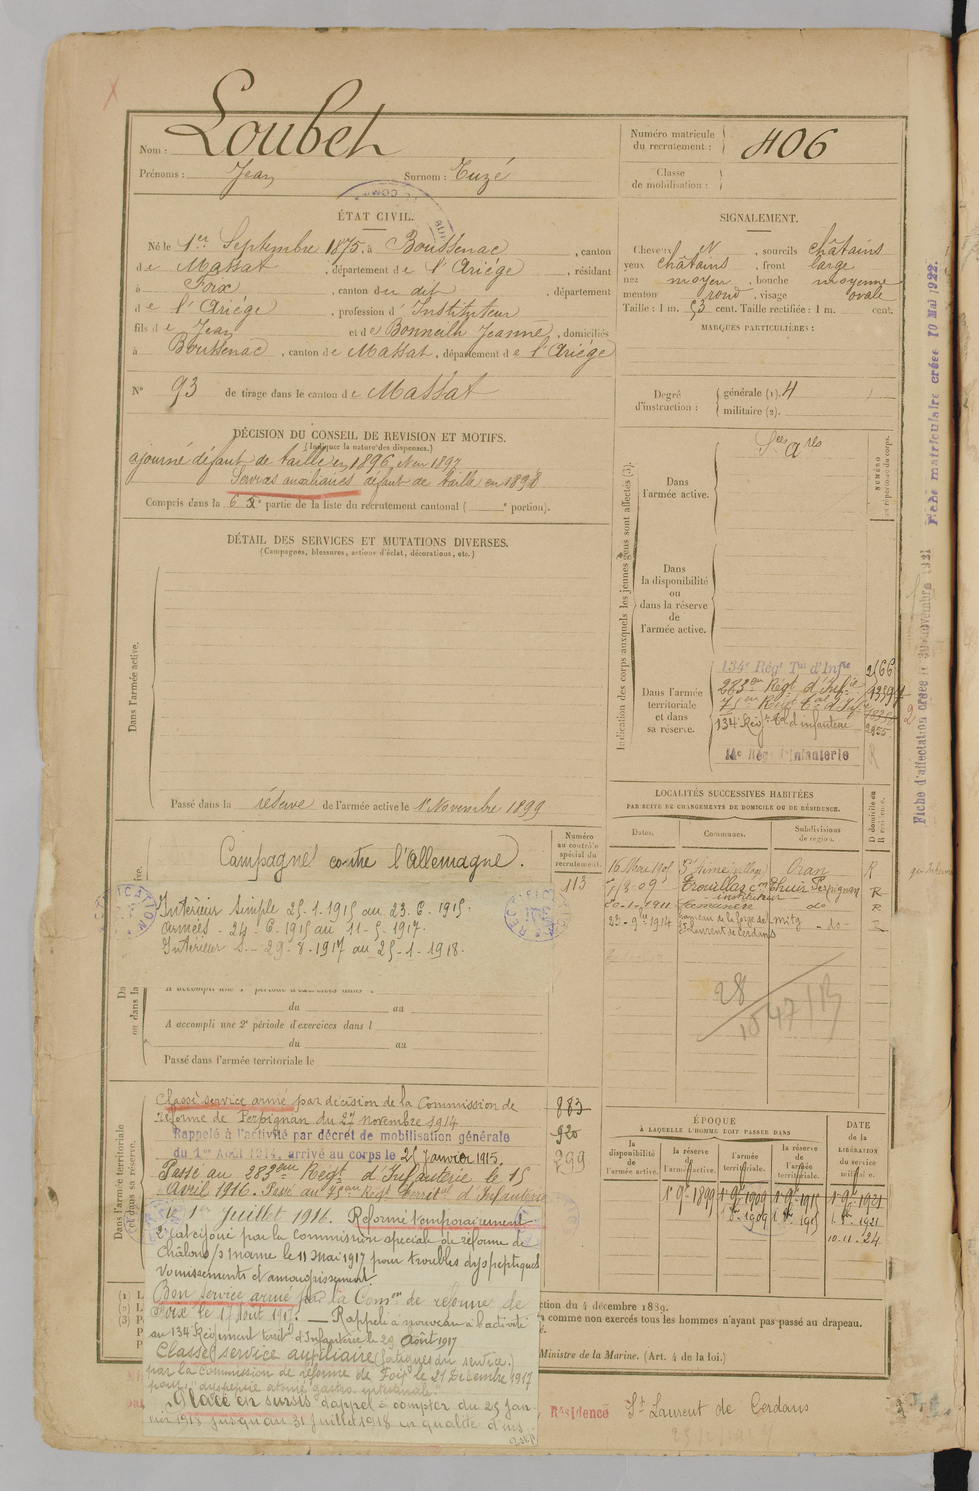 Nom : Loubet
Prénoms : Jean Surnom : Tuzé
Numéro matricule
du recrutement : 406
Classe
de mobilisation :
ÉTAT CIVIL.
Né le 1er Septembre 1875, à Boussenac, canton
de Massat, département de l'Ariége, résidant
à Foix, canton du dit, département
de l'Ariége, profession d'Instituteur
fils de Jean et de Bonneilh Jeanne, domiciliés
à Boussenac, canton de Massat, département de l'Ariége
N° 93 de tirage dans le canton de Massat
SIGNALEMENT.
Cheveux N, sourcils châtains
yeux châtains, front large
nez moyen, bouche moyenne
menton rond, visage ovale
Taille : 1 m. 53 cent. Taille rectifiée : 1 m. cent.
MARQUES PARTICULIÈRES :
Degré
d'instruction :
générale (1). 4
militaire (2).
DÉCISION DU CONSEIL DE REVISION ET MOTIFS.
(Indiquer la nature des dispenses.)
ajourné défaut de taille en 1896, N en 1897
Services auxiliaires défaut de taille en 1898
Compris dans la 6e partie de la liste du recrutement cantonal ( e portion).
DÉTAIL DES SERVICES ET MUTATIONS DIVERSES.
(Campagnes, blessures, actions d'éclat, décorations, etc.)
Dans l'armée active.
Passé dans la réserve de l'armée active le 1er Novembre 1899
Indication des corps auxquels les jeunes gens sont affectés (3).
Dans
l'armée active.
NUMÉRO
au répertoire du corps.
Dans
la disponibilité
ou
dans la réserve
de
l'armée active.
Dans l'armée
territoriale
et dans
sa réserve.
134e Régt Tal d'Infie
283em Régt d'Infie
75em Régt tal d'Infie
134e Régt tal d'infanterie
14e Régt d'Infanterie
Fiche d'affectation créée le 30 novembre 1921
Fiche matriculaire créée 10 Mai 1922.
Numéro
au contrôle
spécial du
recrutement.
113
Campagne contre l'Allemagne.
Intérieur simple 25-1-1915 au 23-6-1915
armées - 24-6-1915 au 11-5-1917
Intérieur S - 29-8-1917 au 25-1-1918.
du au
A accompli une 2e période d'exercices dans l
du au
Passé dans l'armée territoriale le
LOCALITÉS SUCCESSIVES HABITÉES
PAR SUITE DE CHANGEMENTS DE DOMICILE OU DE RÉSIDENCE.
Dates. Communes. Subdivisions
de région. D domicile ou
R résidence.
St Aimé (village) Oran R
Trouillas con Thuir Perpignan R
instituteur
do R
St Laurent de Cerdans do
28
Dans l'armée territoriale
et dans sa réserve.
Classé service armé par décision de la Commission de
réforme de Perpignan du 27 novembre 1914
Rappelé à l'activité par décret de mobilisation générale
du 1er Août 1914, arrivé au corps le 25 janvier 1915.
Passé au 283eme Régt d'Infanterie le 15
Avril 1916. Passé au 75eme Régt territal d'Infanterie
le 1er Juillet 1916. Réformé temporairement
2e catégorie par la commission spéciale de réforme de
Châlons s/marne le 11 Mai 1917 pour troubles dyspeptiques
vomissements et amaigrissement.
Bon service armé par la Comon de réforme de
Foix le 17 Août 1917. Rappelé à nouveau à l'activité
au 134e Régiment territal d'Infanterie le 29 Août 1917
Classé service auxiliaire (fatigues du service)
par la commission de réforme de Foix le 21 Décembre 1917
pour : dyspepsie atonie gastro intestinale.
Placé en sursis d'appel à compter du 25 Jan-
vier 1918 jusqu'au 31 Juillet 1918 en qualité d'ins
883
920
299
ÉPOQUE
À LAQUELLE L'HOMME DOIT PASSER DANS
la
disponibilité
de
l'armée active.
la réserve
de
l'armée active.
l'armée
territoriale.
la réserve
de
l'armée
territoriale.
DATE
de la
LIBÉRATION
du service
militaire.
1 9bre 1899 1 9bre 1909 1 9bre 1915 1 9bre 1921
1 8bre 1909 1 8bre 1915 1 8bre 1921
10-11-24
ction du 4 décembre 1889.
comme non exercés tous les hommes n'ayant pas passé au drapeau.
Ministre de la Marine. (Art. 4 de la loi.)
Résidence St Laurent de Cerdans